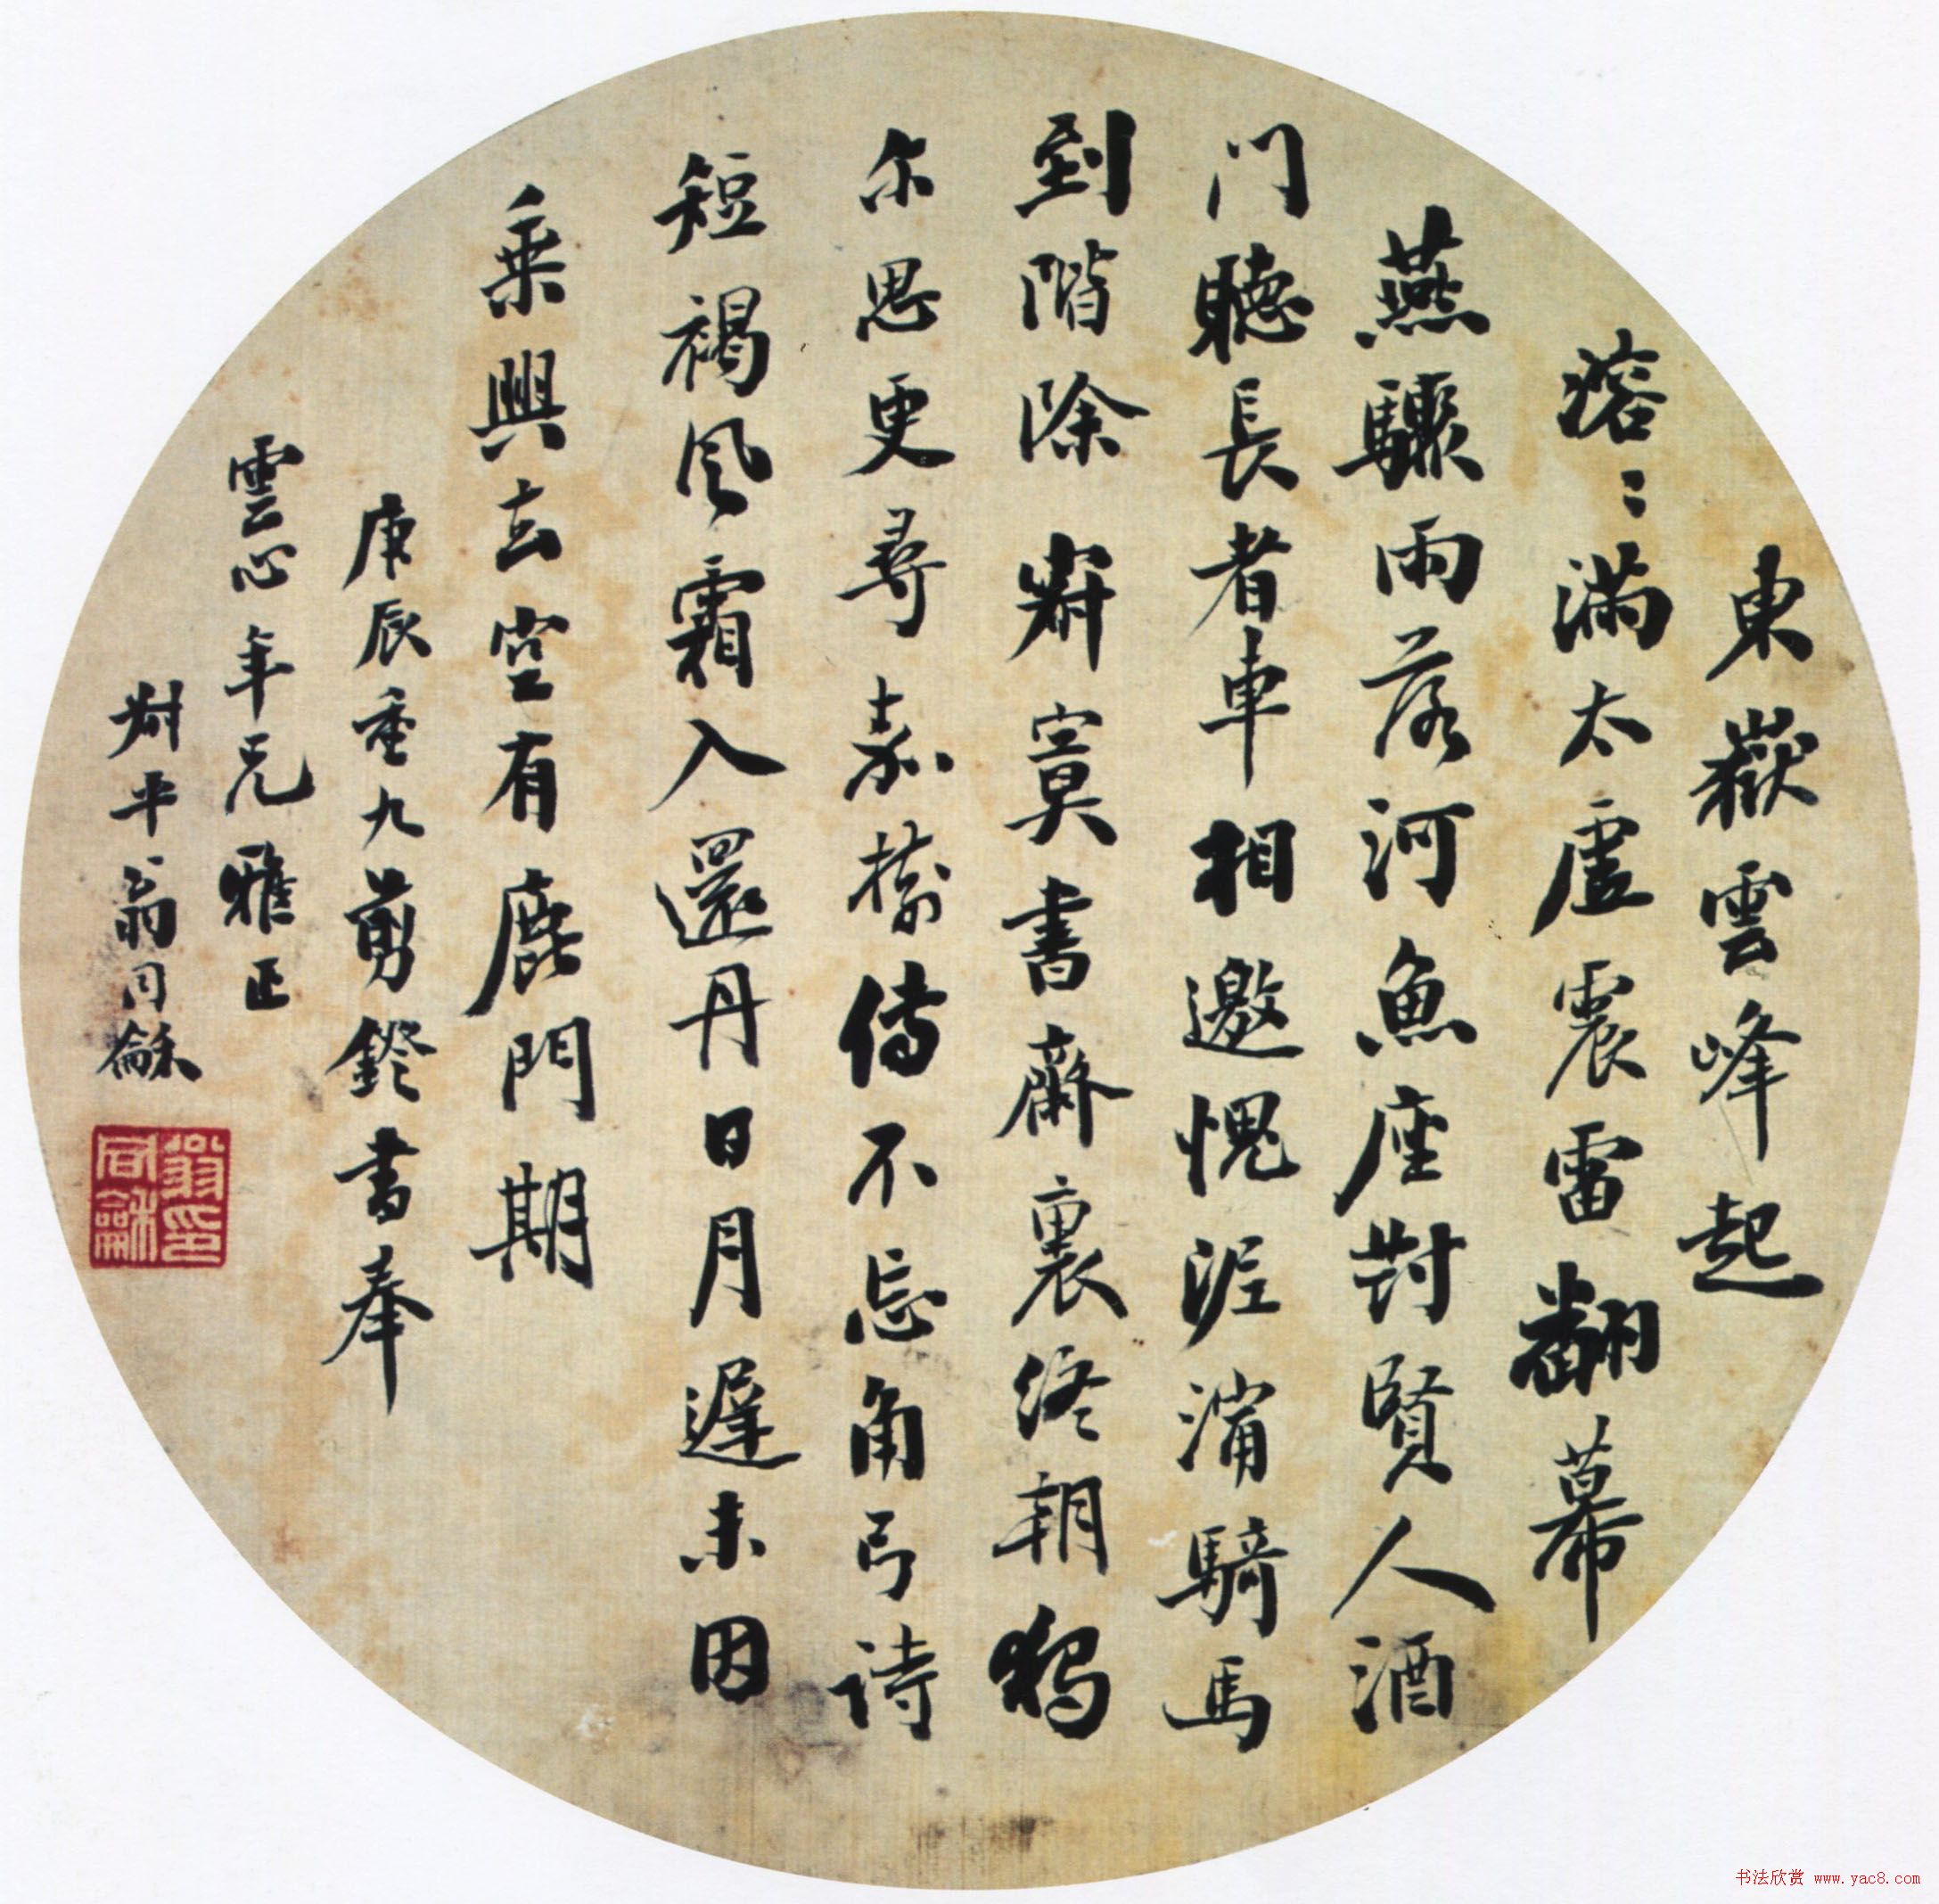 東嶽雲峰起
溶〻滿太虛震雷翻幕
燕驟雨落河魚座對賢人酒
门聽長者車相邀愧泥濘騎馬
到階除 寂寞書齋裏终朝獨
尔思更尋嘉樹傳不忘角弓诗
短褐風霜入還丹日月遲未因
乘興去空有鹿門期
庚辰重九剪鐙書奉
雲心年兄雅正
尌平翁同龢
翁同龢印
书法欣赏 www.yac8.com